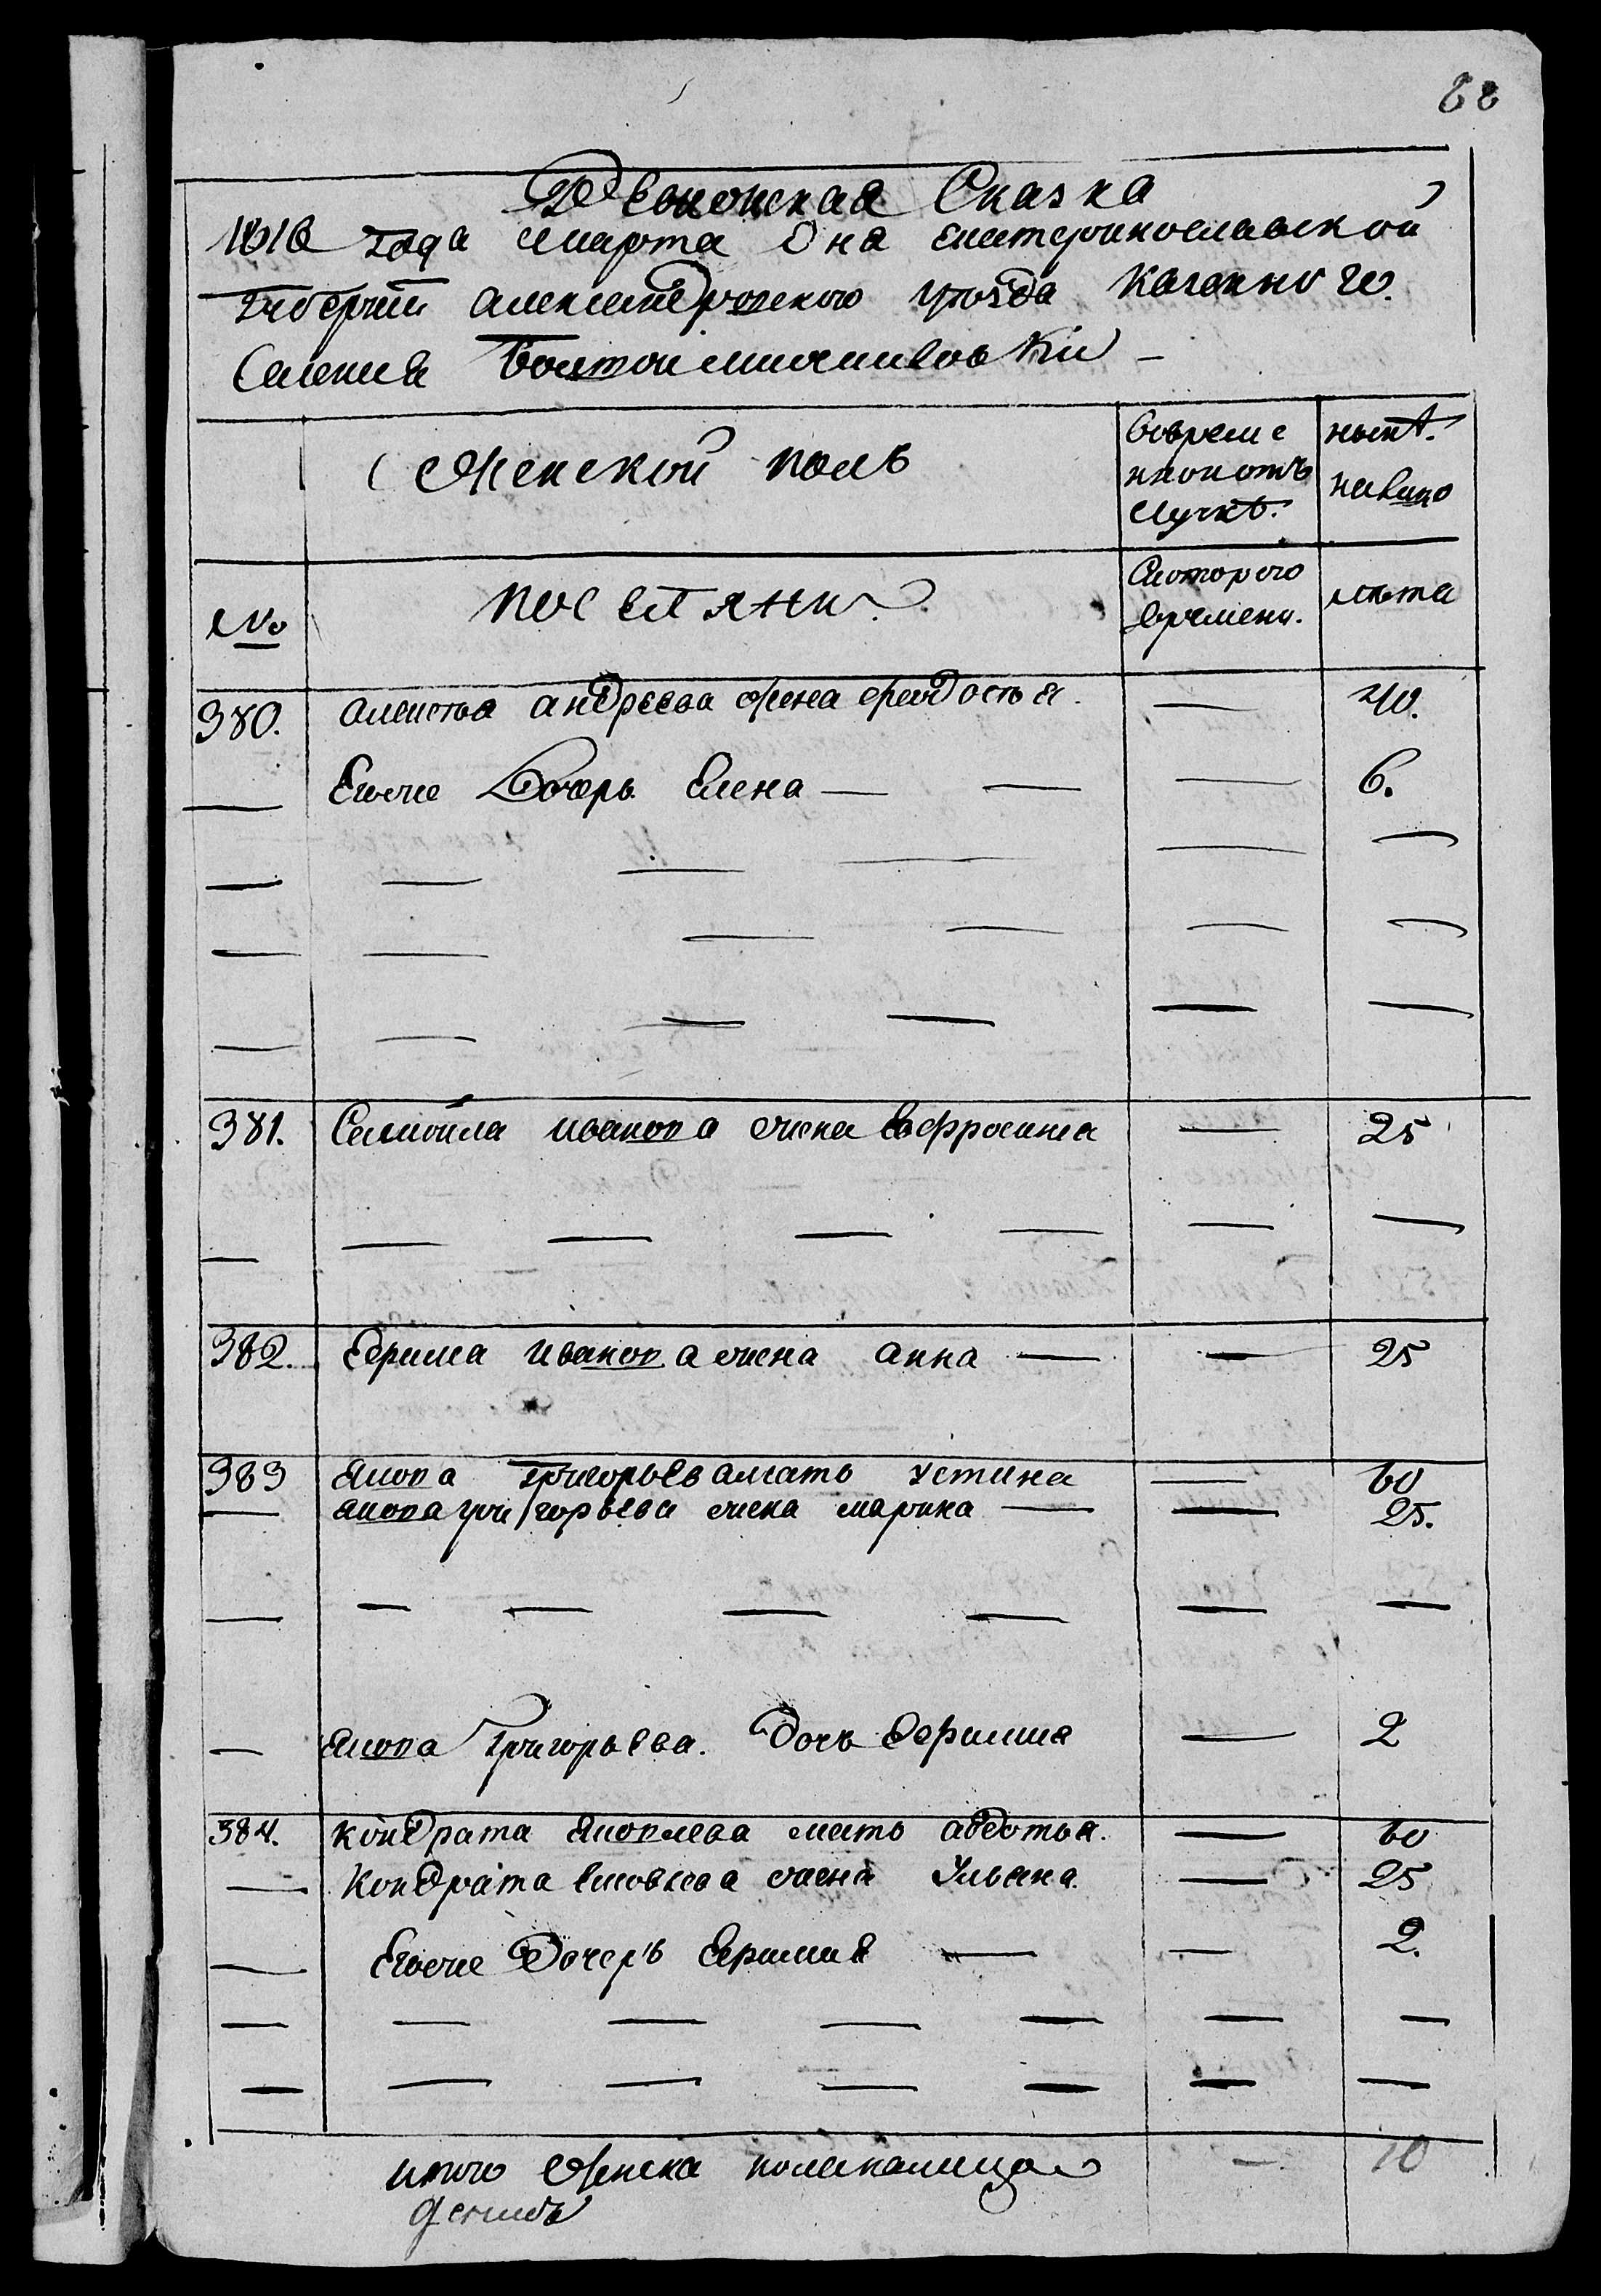 88
Ревизская Сказка
1816 года марта дня екатеринославской
губернии александровского уезда казенного
Селения
Женской полъ
Вовреме
нной отъ
лучкѣ.
нынѣ.
налицо
№
поселяни
Скоторого
времени.
лѣта
380. алексѣя андреева жена феодосья. — 40.
— Егоже Дочерь Елена — — — 6.
381. Самойла иванова жена Евфросинья — 25
382. Ефима иванова жена анна — — 25
383 Якова григорьева мать устина — 60
— якова григорьева жена марина — — 25.
— Якова Григорьева. Дочь Ефимия — 2
384. кондрата Яковлева мать авдотья. — 60
— Кондрата Яковлева жена Ульяна. — 25
— Егоже Дочерь Ефимия — — 2.
итого Женска пола налицо — 10